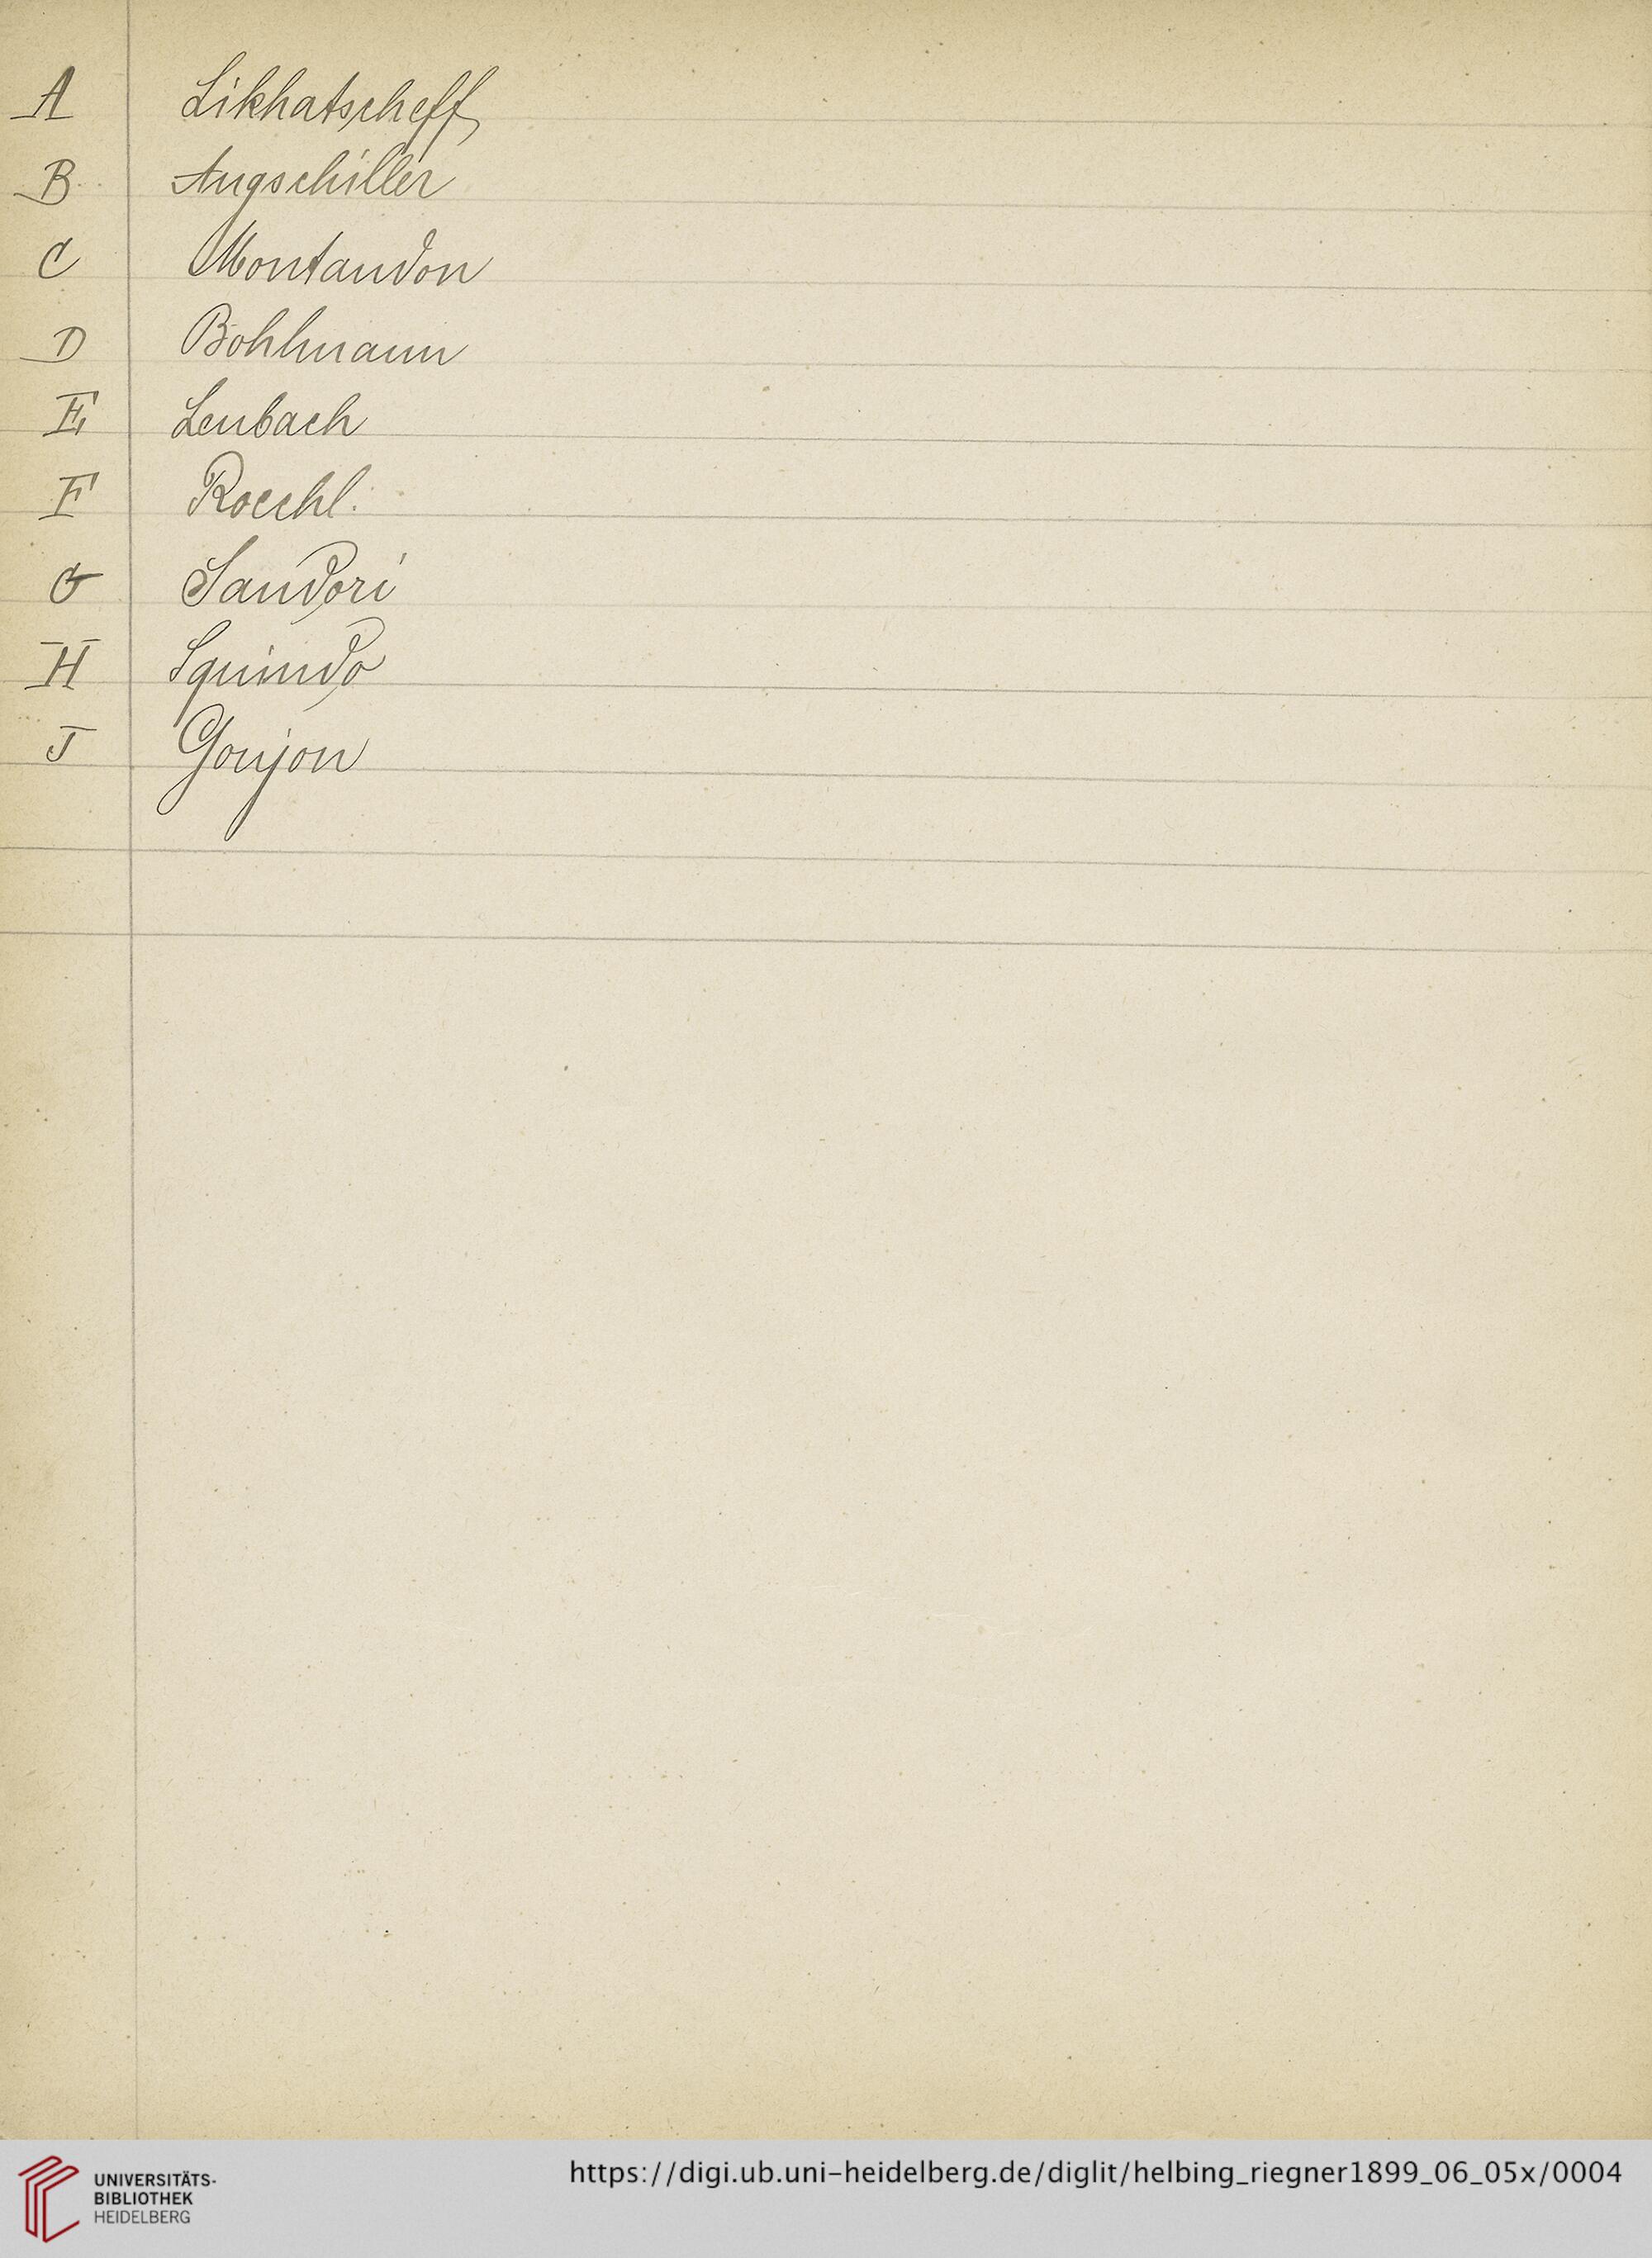 A Likhatscheff
B Augschiller
C Montandon
D Bohlmann
E Lenbach
F Roechl.
G Sandori
H Squindo
J Goujon
UNIVERSITÄTS-
BIBLIOTHEK
HEIDELBERG
https://digi.ub.uni-heidelberg.de/diglit/helbing_riegner1899_06_05x/0004